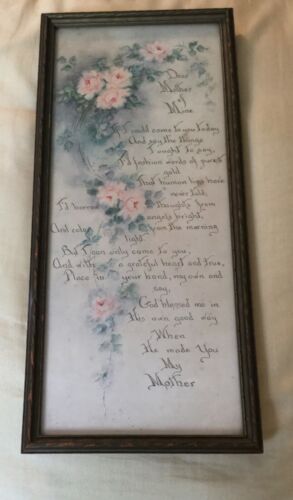 Dear
Mother
of
Mine
If I could come to you today
And say the things
I ought to say,
I'd fashion words of purest
gold
That human lips have
never told;
I'd borrow thoughts from
angels bright,
And color from the morning
light.
But I can only come to you,
And with a grateful heart and true,
Place in your hand, my own and
say,
God blessed me in
His own good way
When
He made You
My
Mother